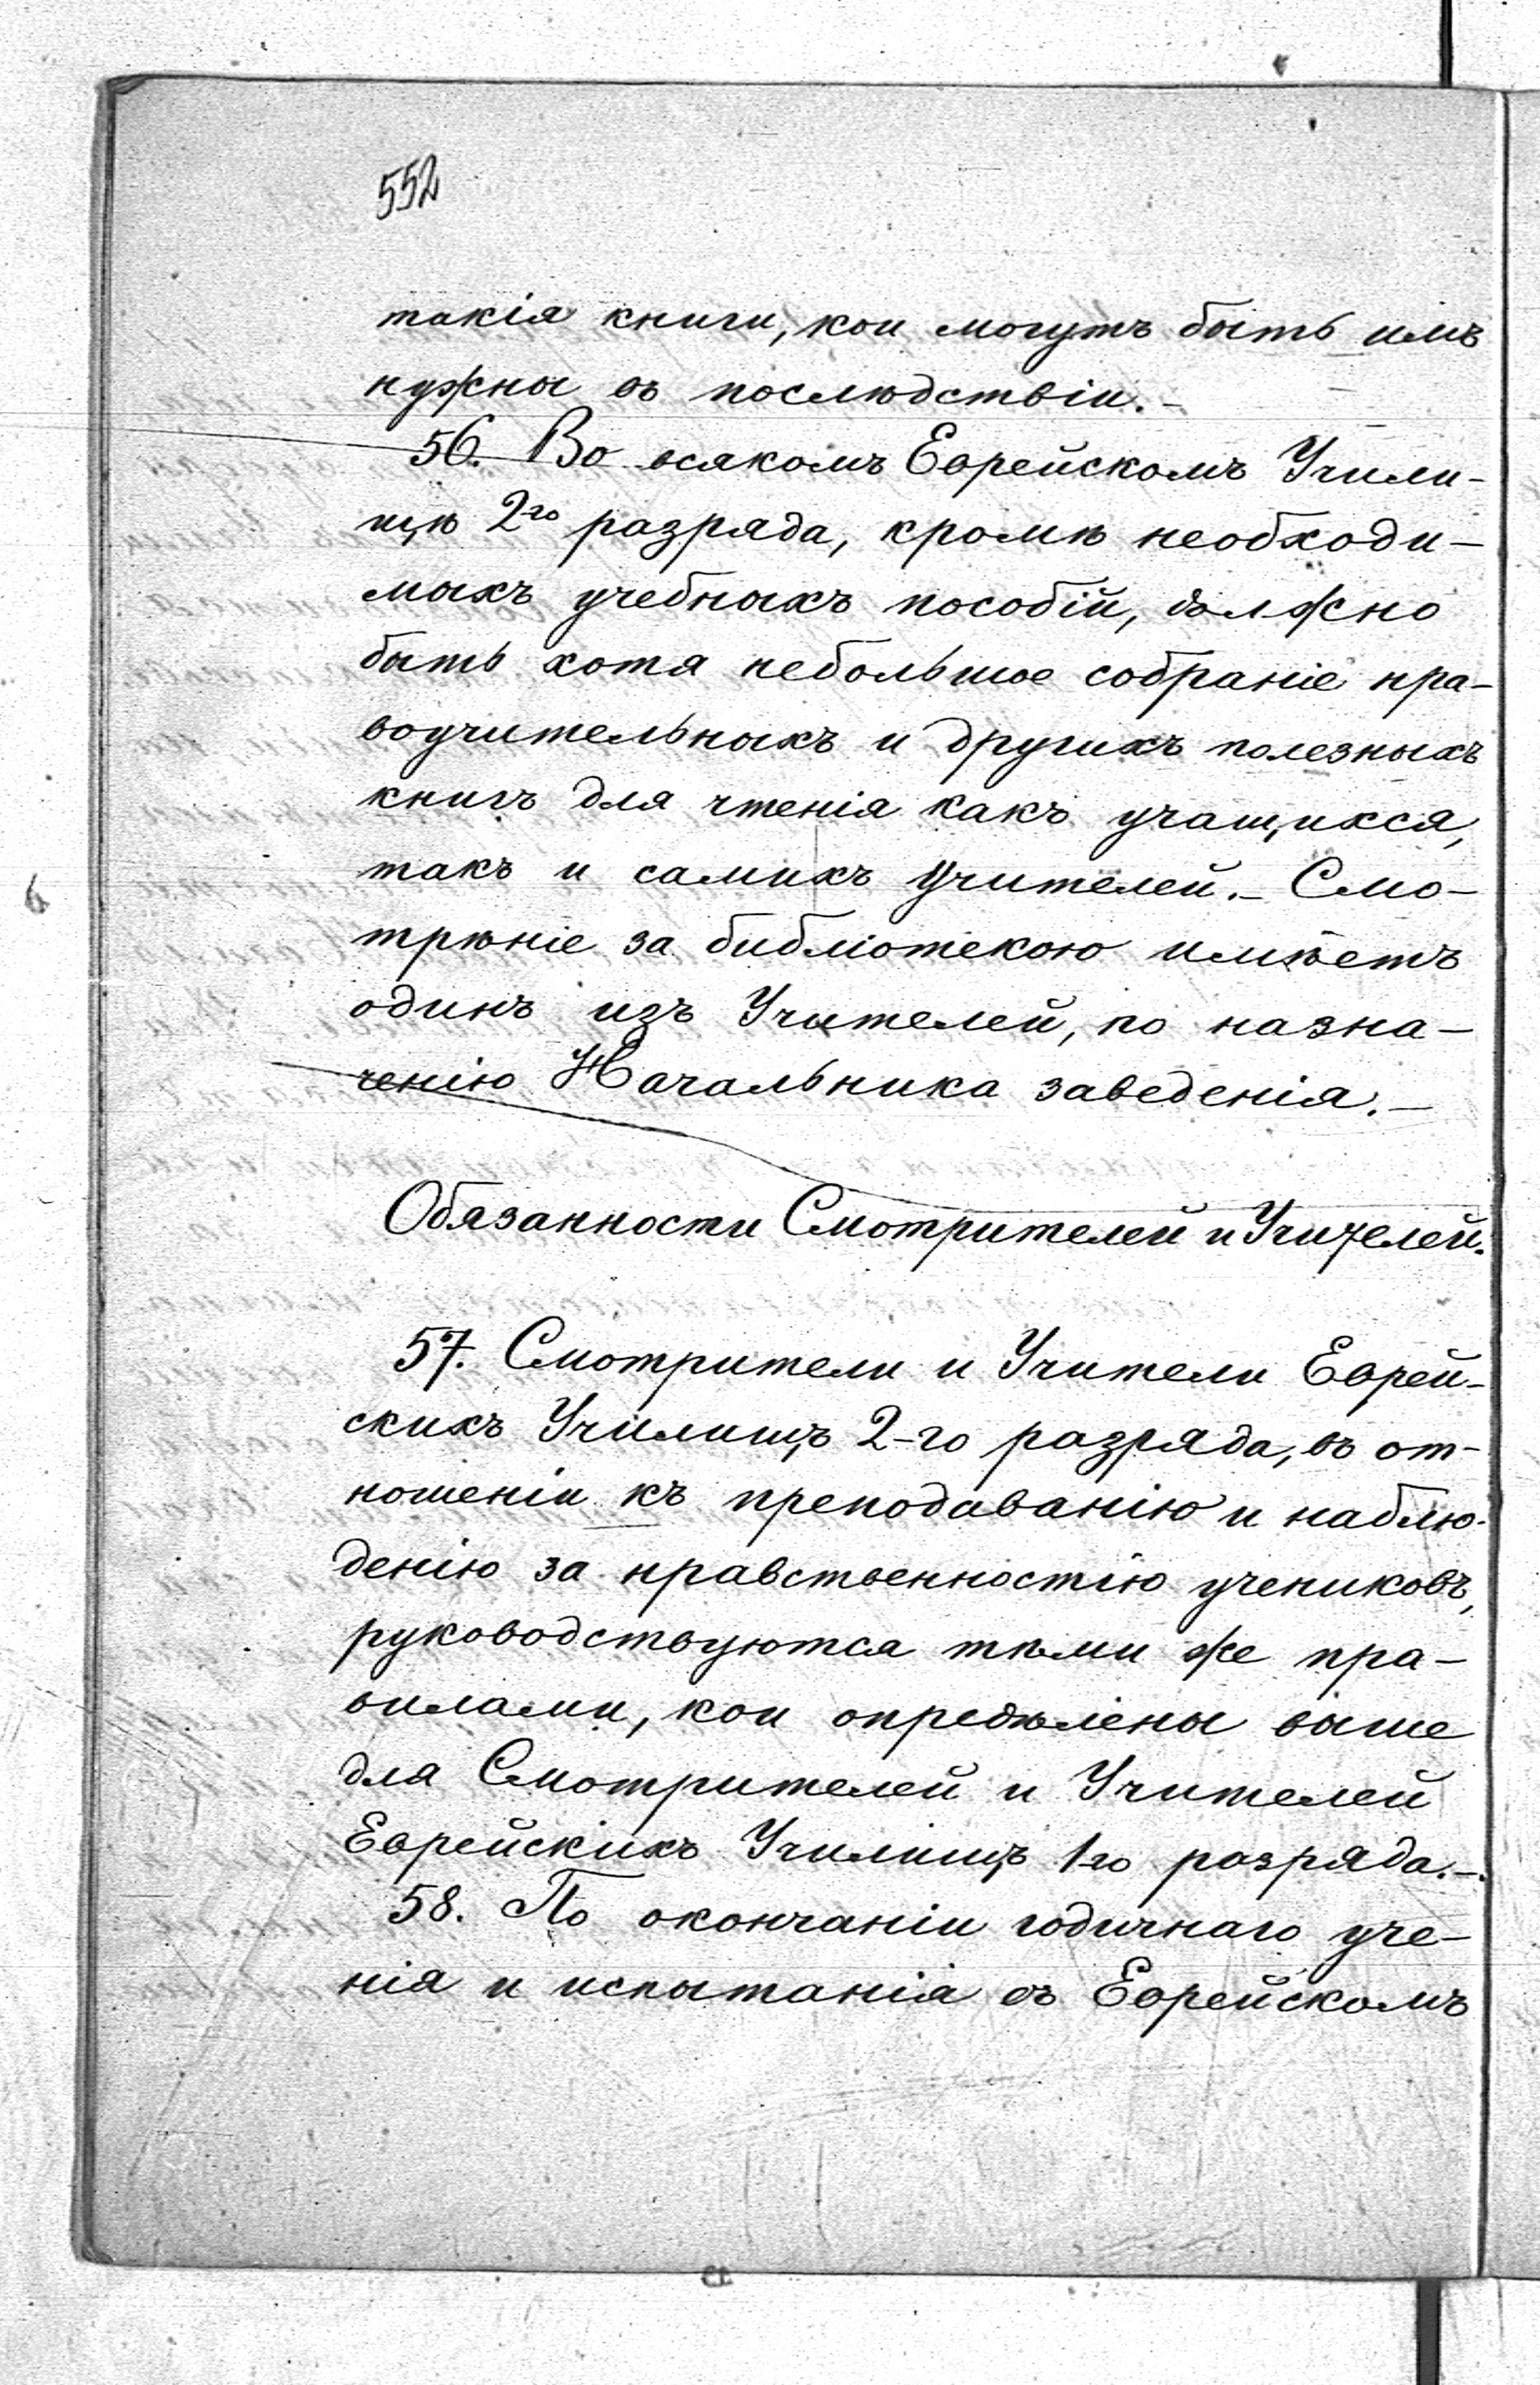 552
такія книги, кои могутъ быть имъ
нужны въ послѣдствіи.-
56. Во всякомъ Еврейскомъ Учили-
щѣ 2го разряда, кромѣ необходи-
мыхъ учебныхъ пособій, должно
быть хотя небольшое собраніе нра-
воучительныхъ и другихъ полезныхъ
книгъ для чтенія какъ учащихся,
такъ и самихъ Учителей.- Смо-
трѣніе за библіотекою имѣетъ
одинъ изъ Учителей, по назна-
ченію Начальника заведенія.-
Обязанности Смотрителей и Учителей.
57. Смотрители и Учители Еврей-
скихъ Училищъ 2-го разряда, въ от-
ношеніи къ преподаванію и наблю-
денію за нравственностію учениковъ,
руководствуются тѣми же пра-
вилами, кои опредѣлены выше
для Смотрителей и Учителей
Еврейскихъ Училищъ 1го разряда.-
58. По окончаніи годичнаго уче-
нія и испытанія въ Еврейскомъ